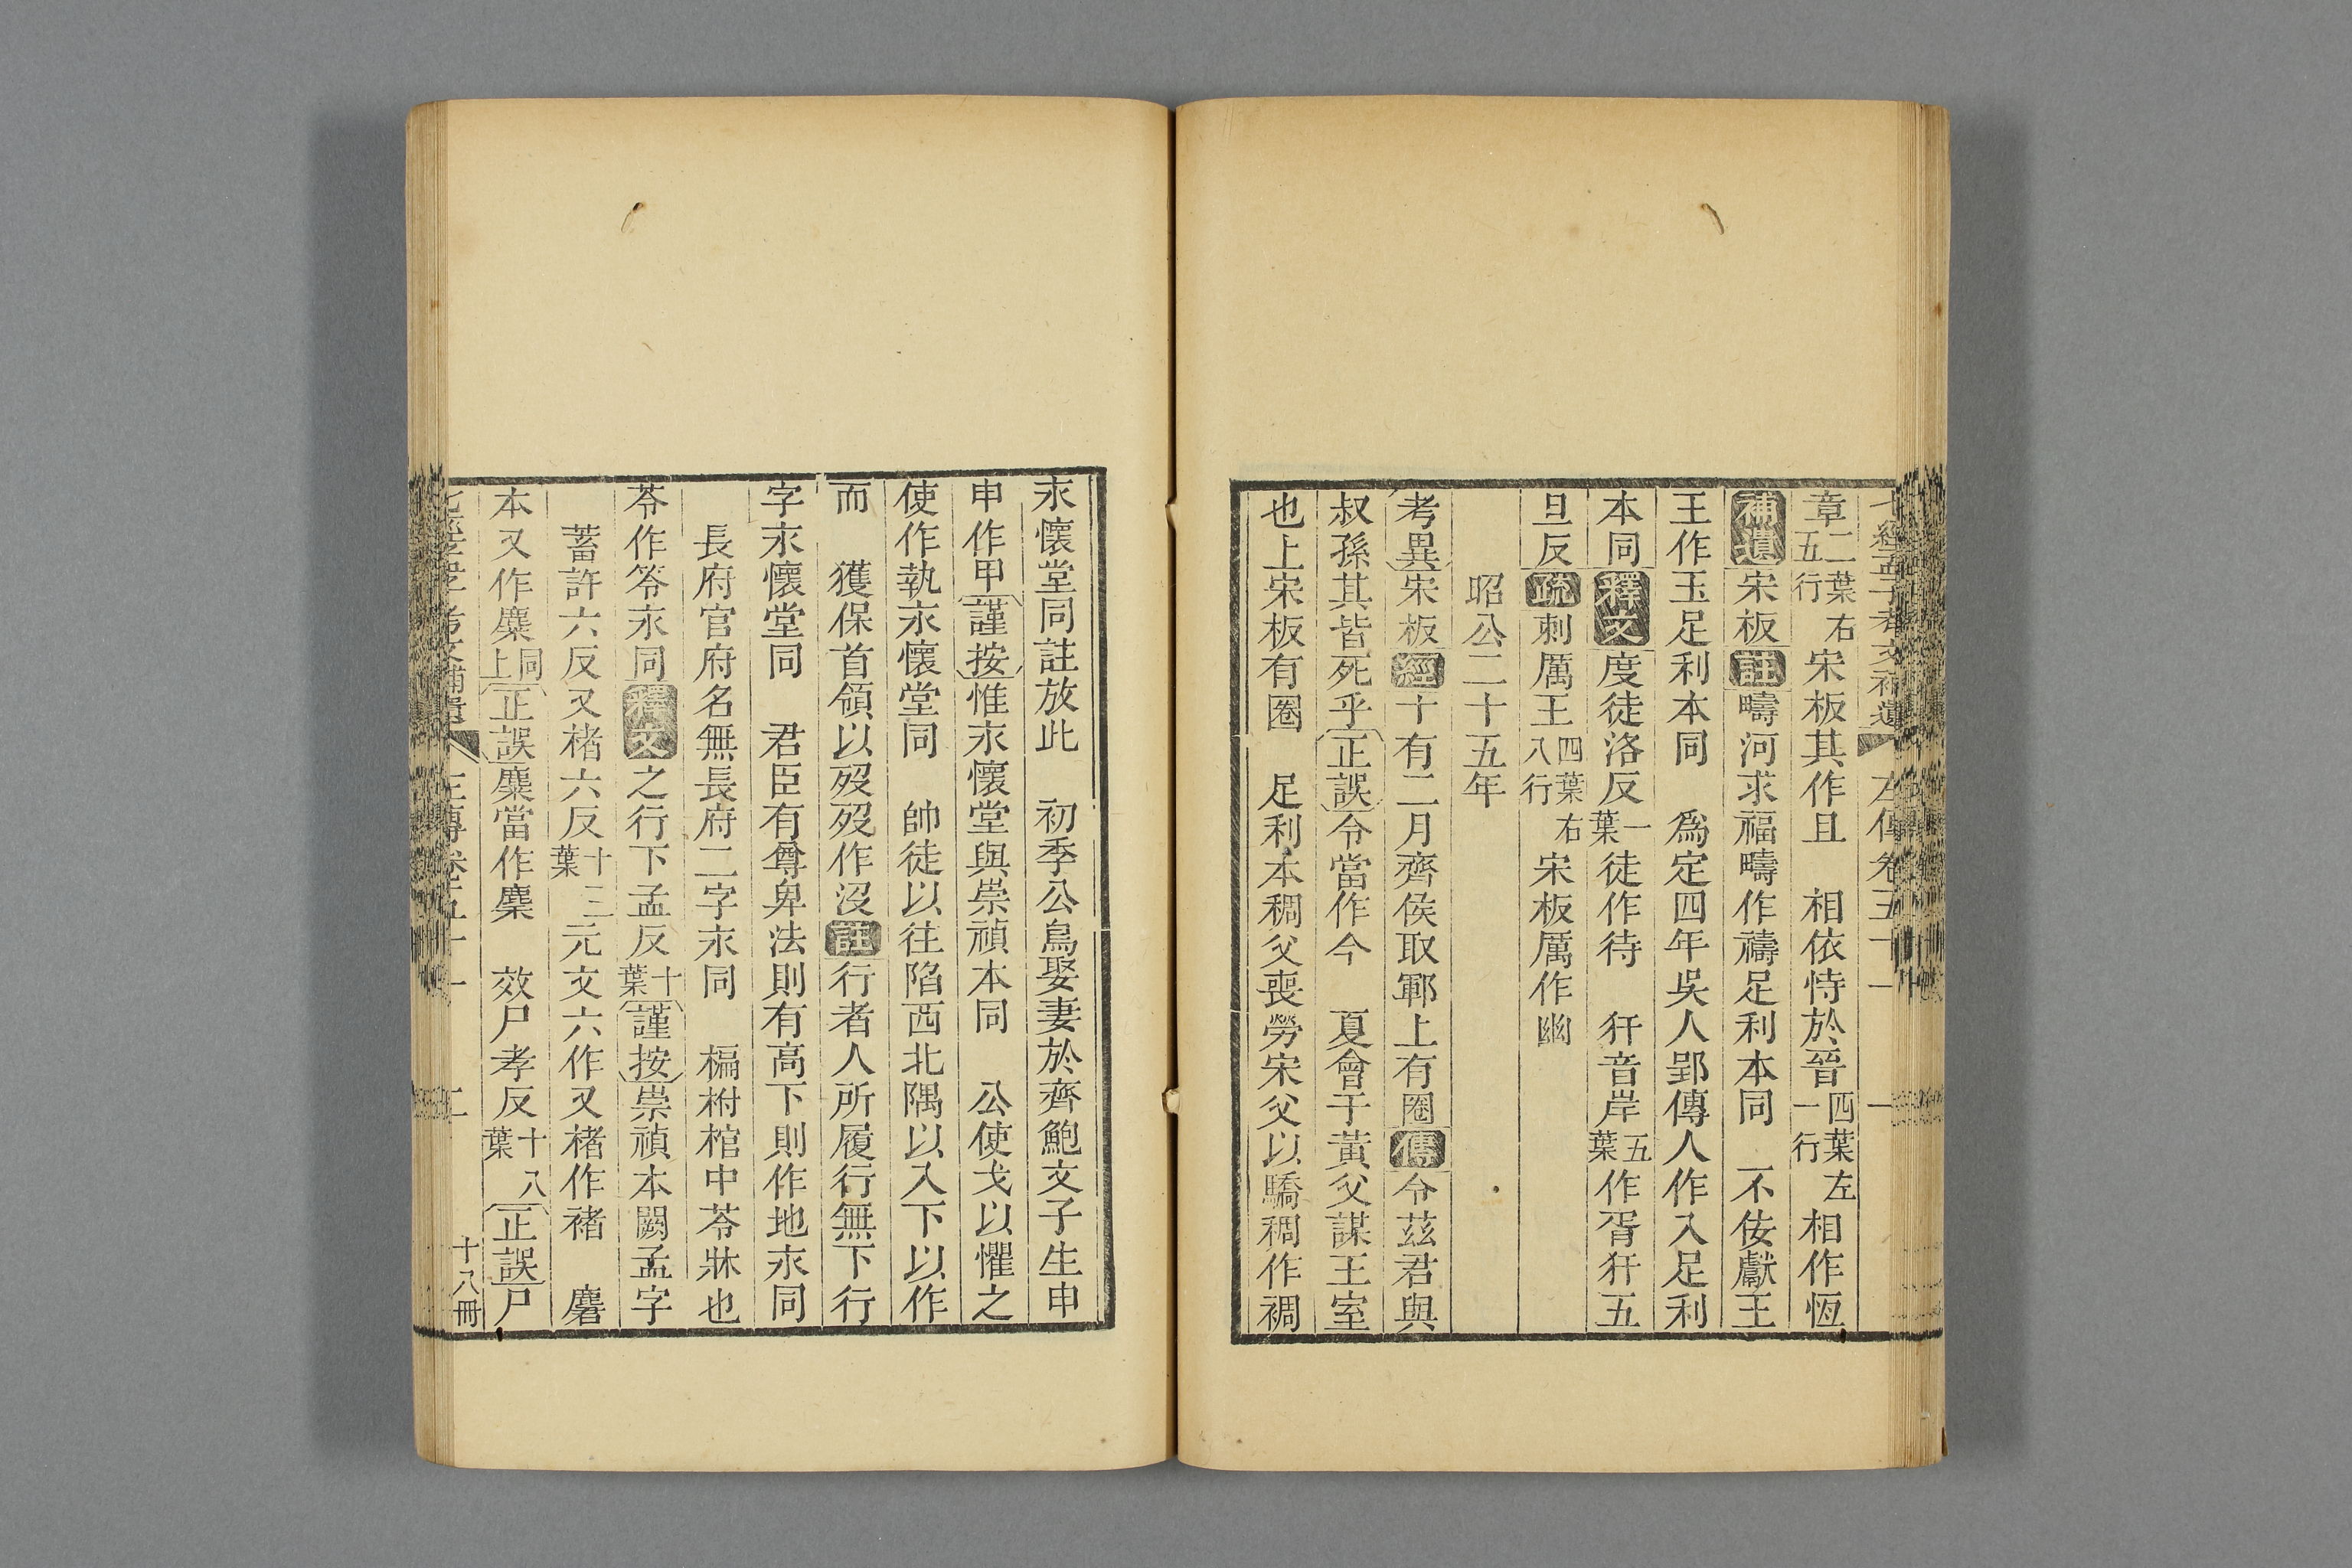 七經孟子考文補遺 左傳卷五十一
章二葉右五行宋板其作且 相依恃於晉四葉左一行相作恆
補遺宋板註疇河求福疇作禱足利本同 不佞獻王
王作玉足利本同 爲定四年吳人郢傳人作入足利
本同釋文度徒洛反一葉徒作待 犴音岸五葉作胥犴五
旦反疏刺厲王四葉右八行宋板厲作幽
昭公二十五年
考異宋板經十有二月齊侯取鄆上有圈傳令茲君與
叔孫其皆死乎正誤令當作今 夏會于黃父謀王室
也上宋板有圈 足利本稠父喪勞宋父以驕稠作裯
永懷堂同註放此 初季公鳥娶妻於齊鮑文子生申
申作甲謹按惟永懷堂與崇禎本同 公使戈以懼之
使作執永懷堂同 帥徒以往陷西北隅以入下以作
而 獲保首領以歿歿作沒註行者人所履行無下行
字永懷堂同 君臣有尊卑法則有高下則作地永同
長府官府名無長府二字永同 楄柎棺中苓牀也
苓作笭永同釋文之行下孟反十葉謹按崇禎本闕孟字
蓄許六反又楮六反十二葉元文六作又楮作褚 麏
本又作麇同上正誤麇當作麋 效尸孝反十八葉正誤尸
十八冊